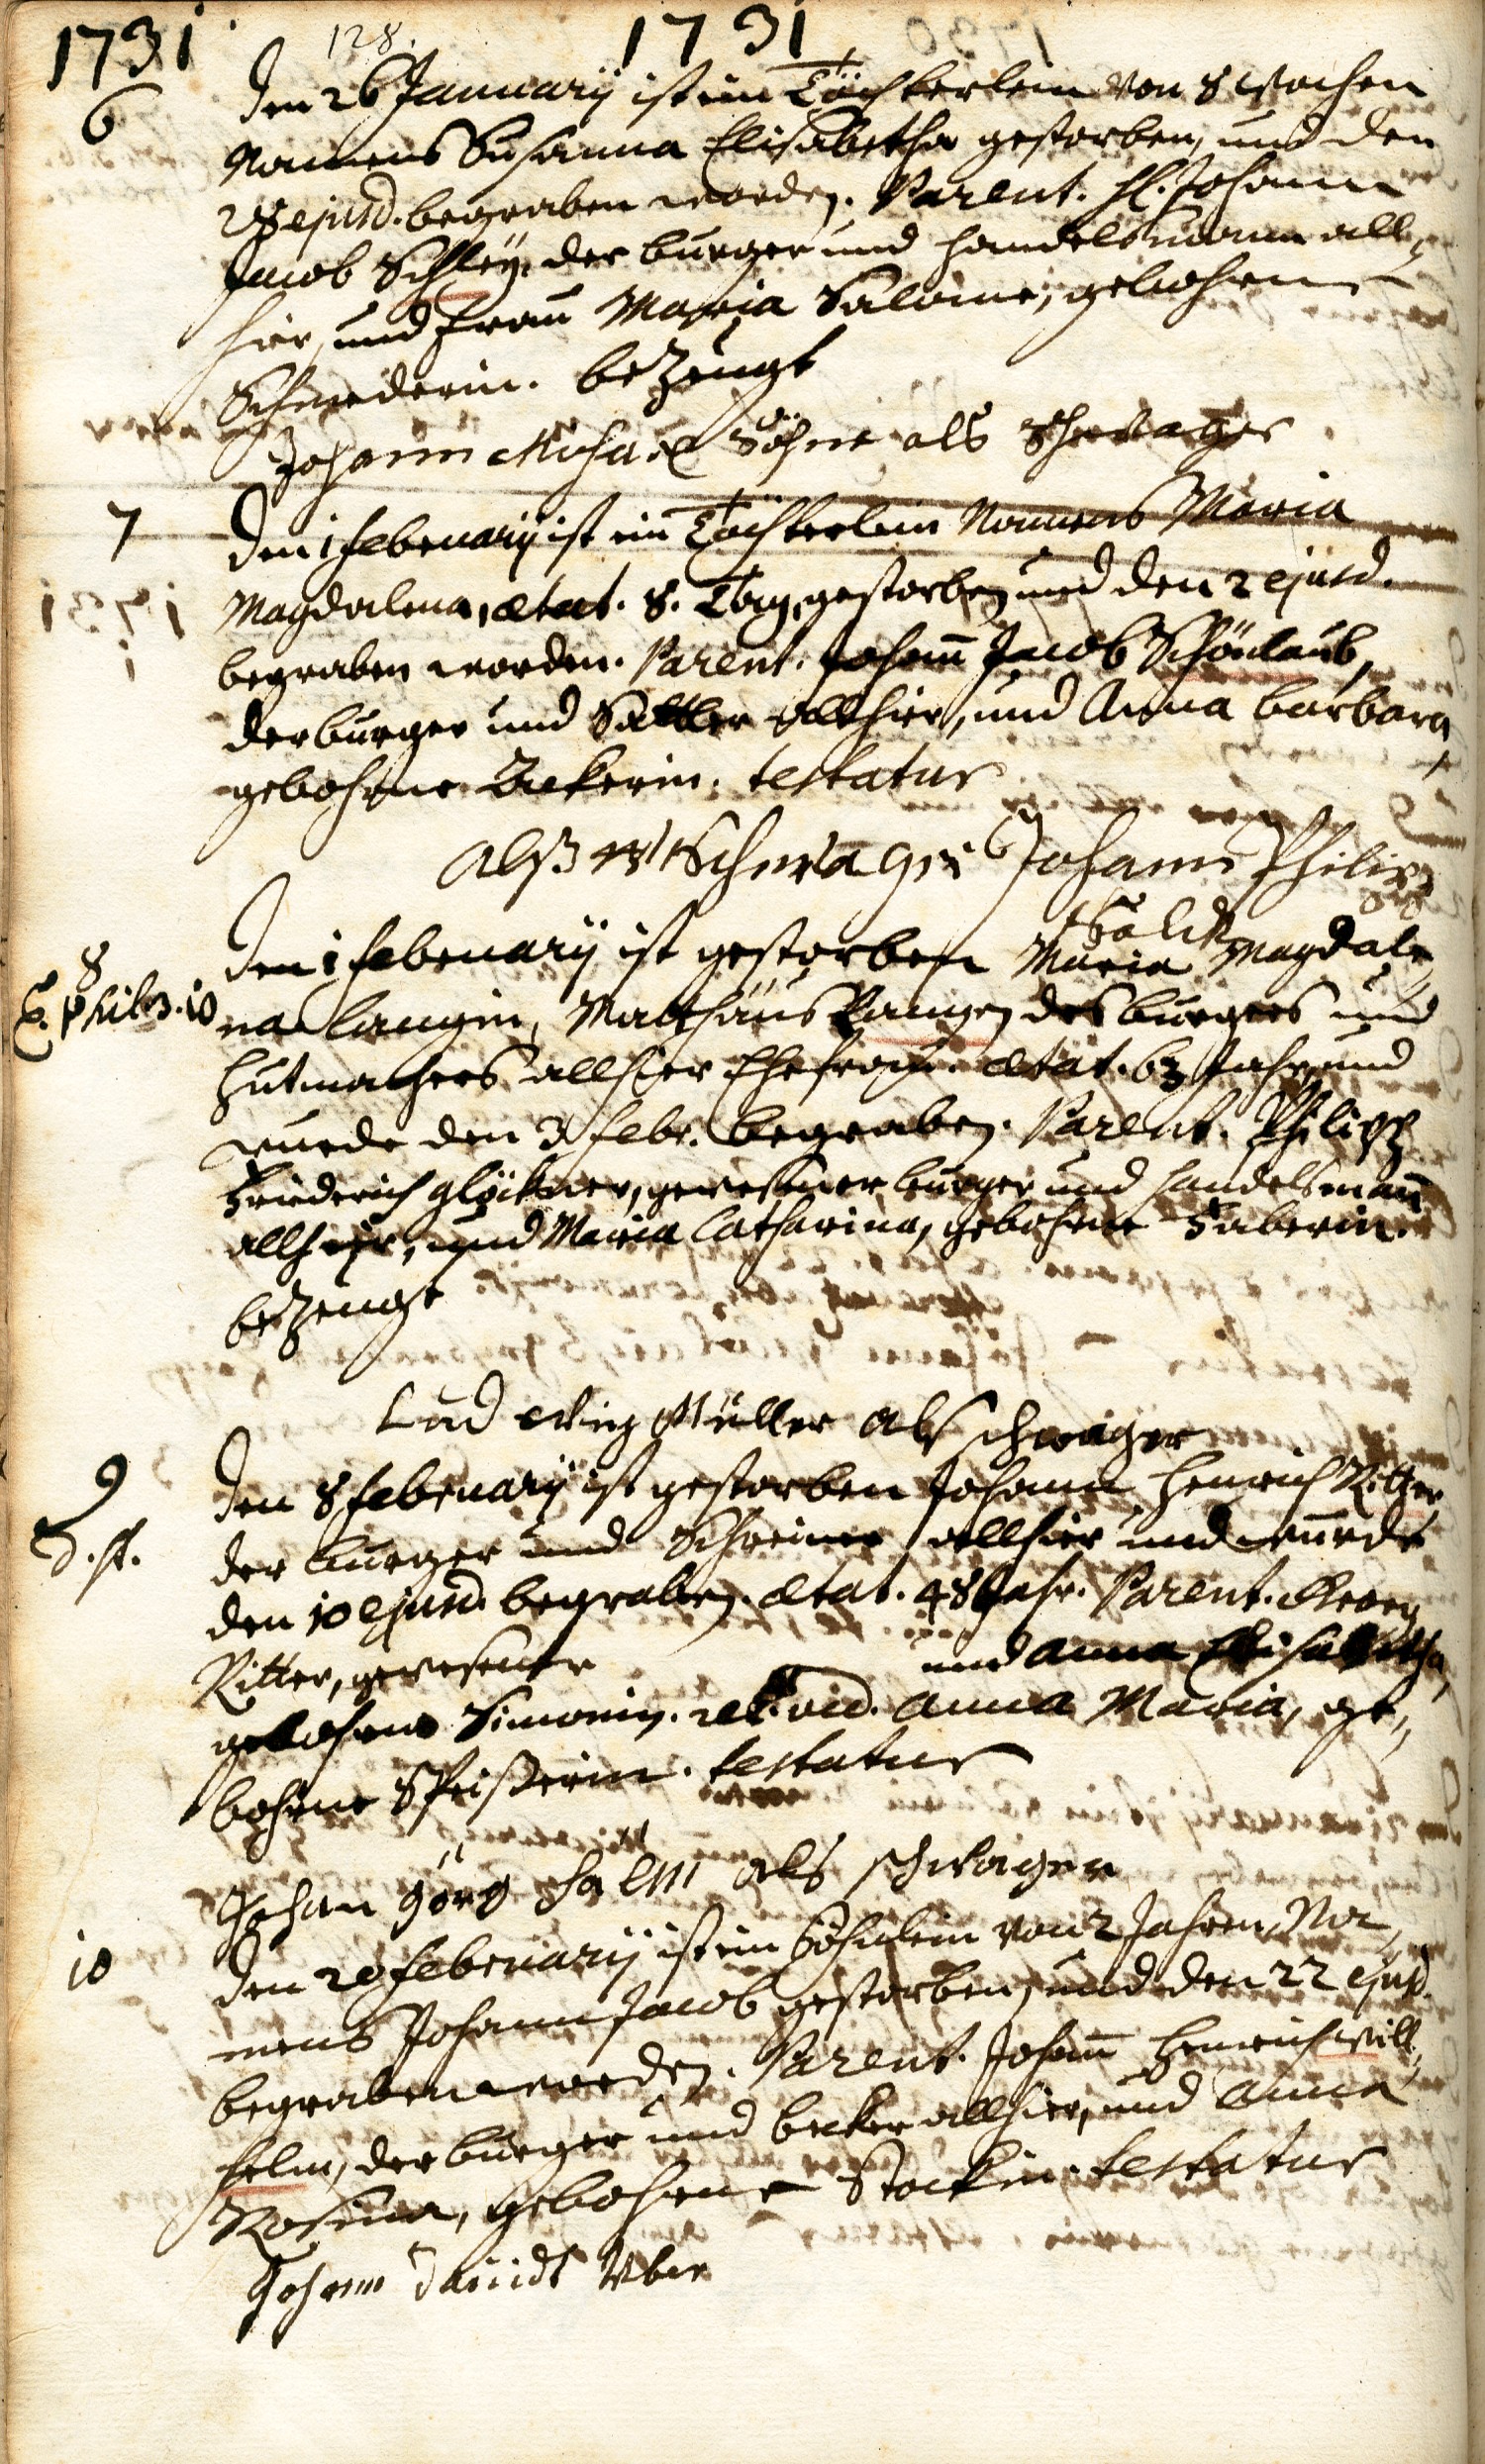 1731 128. 1731
6 den 26 Januarij ist ein Töchterlein von 8 Wochen
Namens Susanna Elisabetha gestorben, und den
28 ejusd. begraben worden. Parent. H. Johann
Jacob Schley, der burger und handelsmann all-
hier, und Frau Maria Salome, gebohrne
Schneiderin. bezeugt
Johann Michael Söhne als Schwager
7 den 1 Februarij ist ein Töchterlein Namens Maria
Magdalena, ætat. 8. Tag, gestorben und den 2 ejusd.
begraben worden. Parent. Johann Jacob Schönlaub,
der burger und Sattler allhier, und Anna barbara,
gebohrne Beckerin. testatur
Alß Schwager Johann Philip
8 den 1 Februarij ist gestorben Maria Magdale-
E. Phil. 3. 10 na Langin, Matthäus Langen des burgers und
Hutmachers allhier Ehefrau. ætat. 63 Jahr, und
wurde den 3 Febr. begraben. Parent. Philipp
Friederich glöckner, gewesener burger und handelsmann
allhier, und Maria Catharina, gebohrne Faberin.
bezeugt
Ludwig Müller als schwager
9 den 8 Februarij ist gestorben Johann Henrich Ritter
D. st. der burger und Schreiner allhier und wurde
den 10 ejusd. begraben. ætat. 48 Jahr. Parent. Georg
Ritter, gewesener und Anna Elisabetha,
gebohrne Simonin. rel. vid. Anna Maria, ge-
bohrne Speißerin. testatur
Johan görg Salm als schwager
10 den 20 Februarij ist ein Söhnlein von 2 Jahren, Na-
mens Johann Jacob gestorben, und den 22 ejusd.
begraben worden. Parent. Johann Henrich Will-
helm, der burger und becker allhier, und Anna
Rosina, gebohrne Stockin. testatur
Johann Davidt Uber